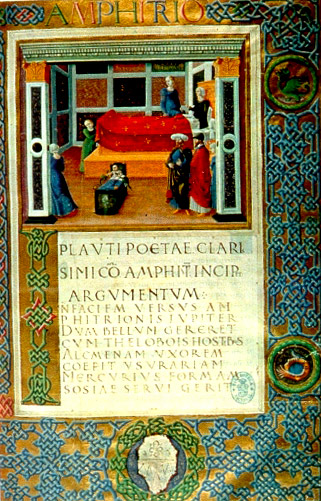 AMPHITRIO
PLAVTI POETAE CLARI
SIMI CŌ AMPHIT INCIP
ARGVMENTVM
N FACIEM VERSVS AM
PHITRIONIS IVPITER
DVM BELLVM GERERET
CVM THELOBOIS HOSTBS
ALCMENAM VXOREM
COEPIT VSVRARIAM
MERCVRIVS FORMAM
SOSIAE SERVI GERIT